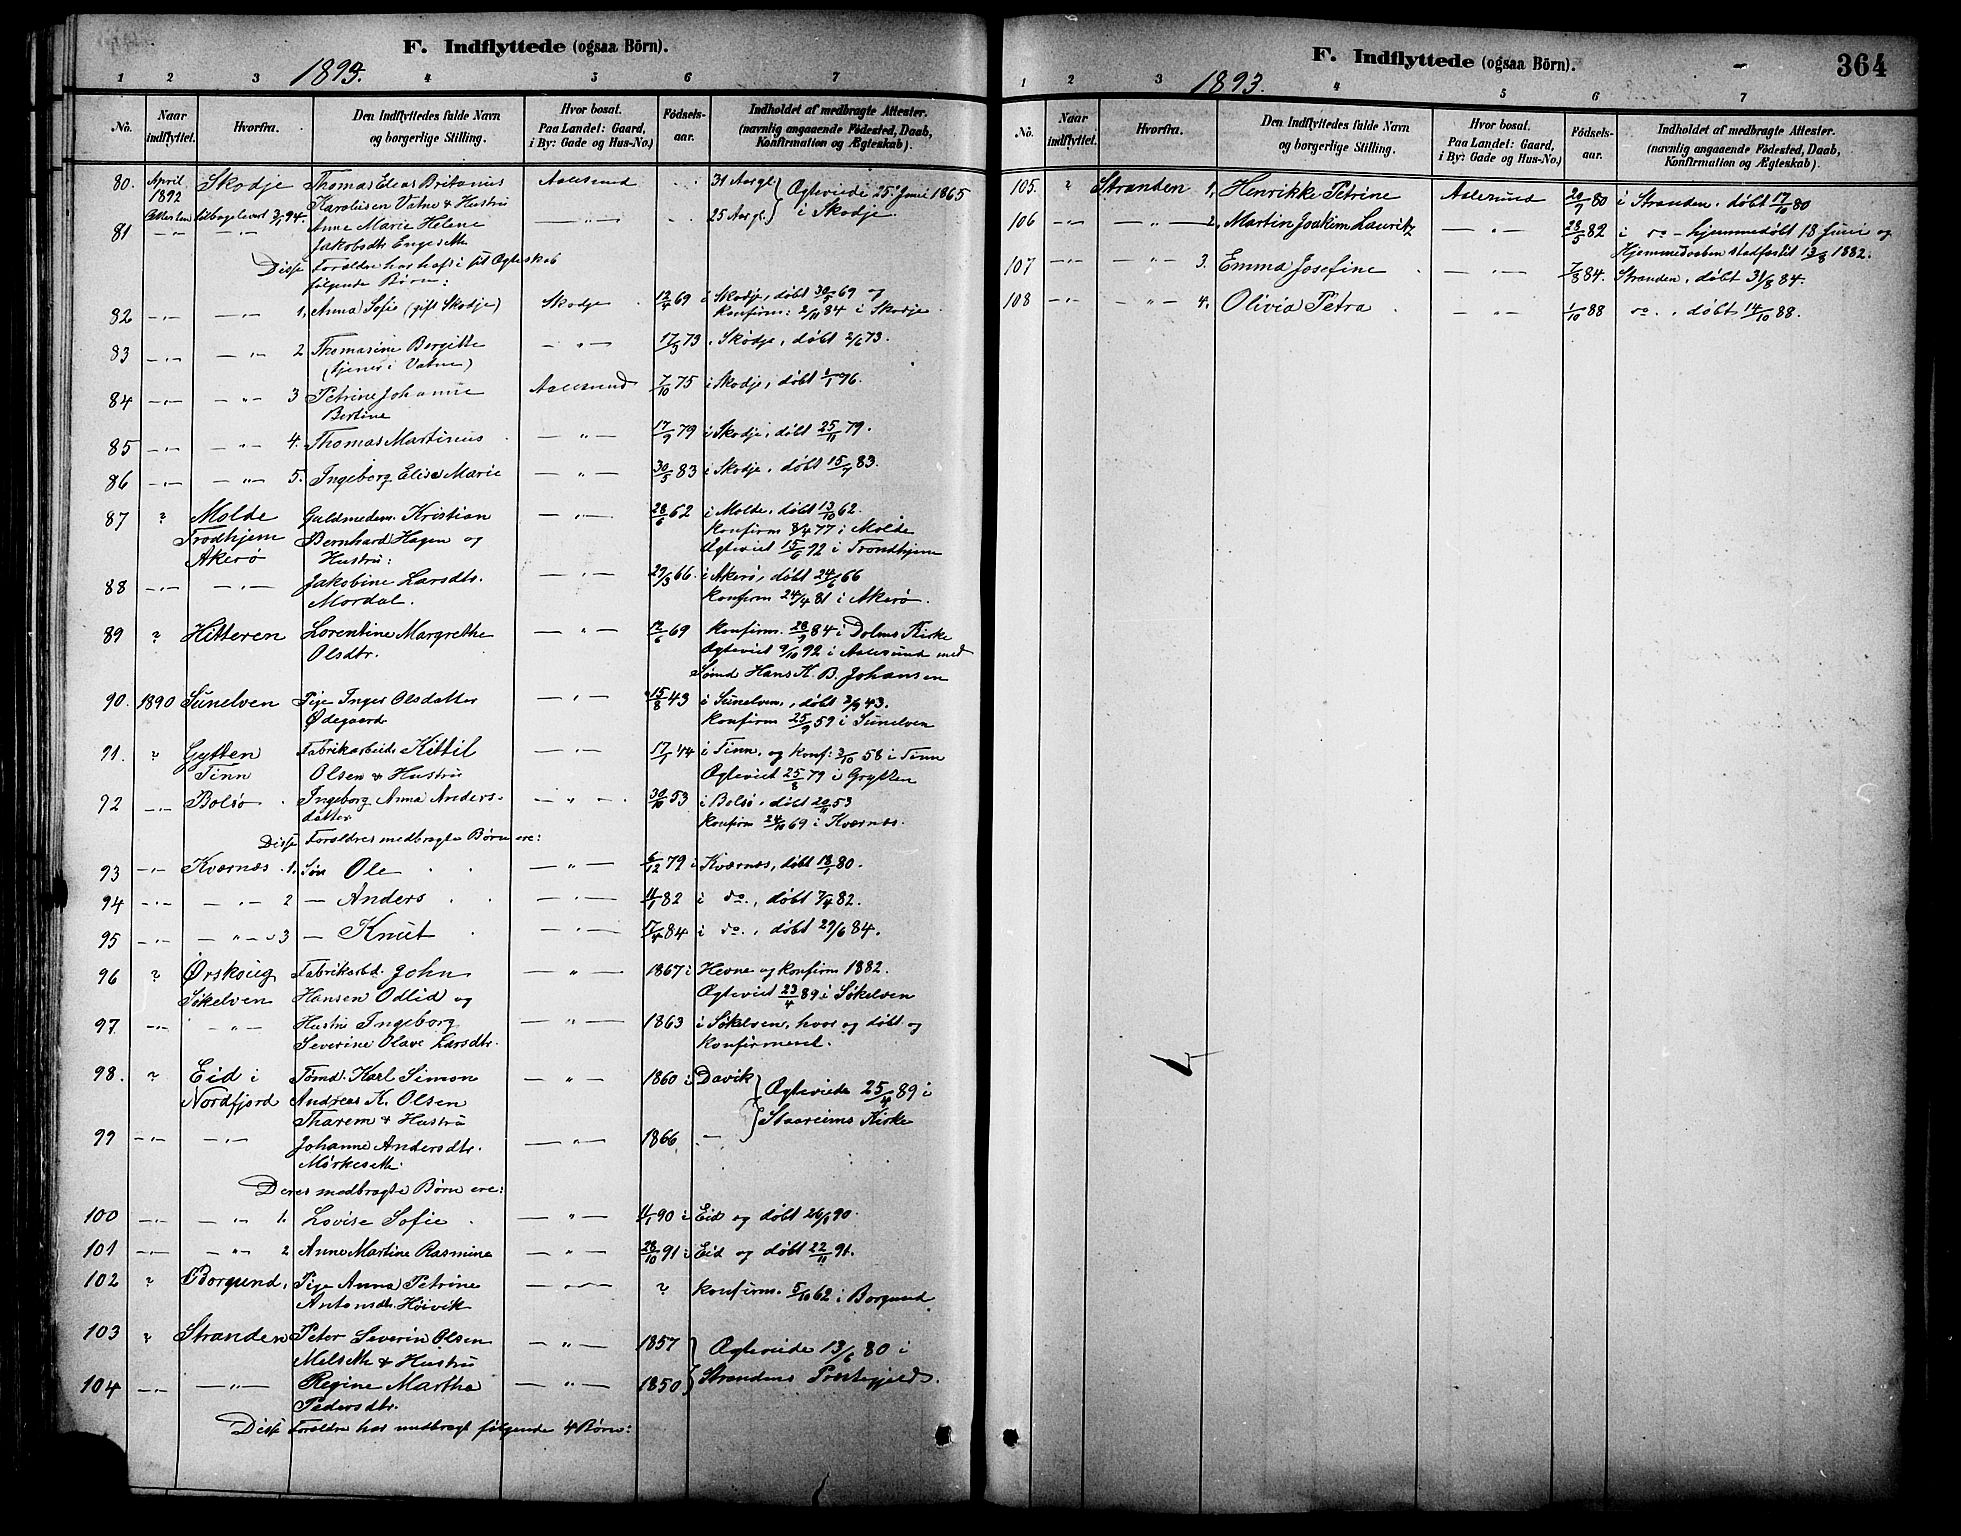 F. Indflyttede (ogsaa Börn).
1893.
1 2 3 4 5 6 7
No. Naar indflyttet. Hvorfra. Den Indflyttedes fulde Navn og borgerlige Stilling. Hvor bosat. Paa Landet: Gaard, i By: Gade og Hus-No.) Fødsels-aar. Indholdet af medbragte Attester. (navnlig angaaende Fødested, Daab, Konfirmation og Ægteskab).
80. April 1892 Skodje Thomas Elias Britanus Aalesund 31 Aar gl. Ægteviede 25. Juni 1865
Attesten tilbagelevert 3/1 94. Karoliusen Vatne & Hustru
81 -"- -"- Anne Marie Helene -"- 25 Aar gl. i Skodje
Jakobsdtr. Engeseth
Disse Forældre har haft i sit Ægteskab
følgende Børn:
82 -"- -"- 1. Anna Sofie (gift Skodje) Skodje 12/4 69 i Skodje, døbt 30/5 69 og
konfirm: 2/11 84 i Skodje.
83 -"- -"- 2 Thomasine Bergitte -"- 17/3 73. Skodje, døbt 2/6 73.
(tjener i Vatne)
84 -"- -"- 3 Petrine Johanne Aalesund 7/10 75 i Skodje, døbt 1/1 76.
Bertine
85 -"- -"- 4. Thomas Martinus -"- 17/9 79 i Skodje, døbt 25/11 79.
86 -"- -"- 5. Ingeborg Elise Marie -"- 30/5 83 i Skodje, døbt 15/7 83.
87 ? Molde Guldmedem. Kristian -"- 28/6 62 i Molde, døbt 13/10 62.
Trodhjem Bernhard Hagen og konfirm 8/4 77 i Molde
Akerø Hustru: Ægteviet 15/6 92 i Trondhjem
88 -"- -"- Jakobine Larsdtr. -"- 29/3 66. i Akerø, døbt 24/6 66
Mordal. konfirm 24/4 81 i Akerø.
89 ? Hitteren Lorentine Margrethe -"- 12/6 69 konfirm. 28/9 84 i Dolms Kirke
Olsdtr. Ægteviet 9/10 92 i Aalesund med
Sømd Hans K. B. Johansen
90. 1890 Sunelven Pige Inger Olsdatter -"- 15/8 43 i Sunelven, døbt 3/9 43.
Ødegaard konfirm 25/9 59 i Sunelven
91. ? Gytten Fabrikarbeid. Kittil -"- 17/1 44 i Tinn, og konf: 3/10 58 i Tinn
Tinn Olsen & Hustru Ægteviet 25/8 79 i Grytten
92 -"- Bolsø Ingeborg Anna Anders- -"- 30/10 53 i Bolsø, døbt 20/11 53
datter konfirm 24/10 69 i Kværnæs.
Disse Forældres medbragte Børn ere:
93 -"- Kværnæs 1. Søn Ole -"- 6/12 79 i Kværnæs, døbt 18/1 80.
94 -"- -"- 2 - Anders -"- 11/1 82 i do., døbt 7/4 82.
95 -"- -"- 3 - Knut -"- 17/4 84 i do., døbt 29/6 84.
96 ? Ørskoug Fabrikarbd. John -"- 1867 i Hevne og konfirm 1882.
Søkelven Hansen Odlid og Ægteviet 23/4 89 i Søkelven
97. -"- -"- Hustru Ingeborg -"- 1863 i Søkelven, hvor og døbt og
Severine Olave Larsdtr. konfirmeret.
98. ? Eid i Tømd. Karl Simon -"- 1860 i Davik Ægteviede 25/4 89 i
Nordfjord Andreas K. Olsen Staareims Kirke
Tharem & Hustru
99 -"- -"- Johanne Andersdtr. -"- 1866 -
Mørkeseth.
Deres medbragte Børn ere:
100 -"- -"- 1. Lovise Sofie -"- 11/1 90 i Eid og døbt 26/1 90.
101 -"- -"- 2 Anne Martine Rasmine -"- 28/10 91 i Eid og døbt 22/11 91.
102 ? Borgund, Pige Anna Petrine -"- ? konfirm. 5/10 62 i Borgund
Antonsdtr. Høivik
103 ? Stranden Peter Severin Olsen -"- 1857 Ægteviede 13/6 80 i
Melseth & Hustru
104 -"- -"- Regine Marthe -"- 1850 Strandens Præstegjeld.
Pedersdtr.
Disse Forældre har medbragt følgende 4 Børn:
F. Indflyttede (ogsaa Börn).
364
1893.
1 2 3 4 5 6 7
No. Naar indflyttet. Hvorfra. Den Indflyttedes fulde Navn og borgerlige Stilling. Hvor bosat. Paa Landet: Gaard, i By: Gade og Hus-No.) Fødsels-aar. Indholdet af medbragte Attester. (navnlig angaaende Fødested, Daab, Konfirmation og Ægteskab).
105. ? Stranden 1. Henrikke Petrine Aalesund 20/9 80 i Stranden, døbt 17/10 80
106 -"- -"- 2. Martin Joakim Lauritz -"- 23/5 82 i do - hjemmedøbt 18 Juni og
Hjemmedaaben stadfæstet 13/8 1882.
107 -"- -"- 3. Emma Josefine -"- 7/8 84. Stranden, døbt 31/8 84.
108 -"- -"- 4. Olivia Petra -"- 1/10 88 do., døbt 14/10 88.